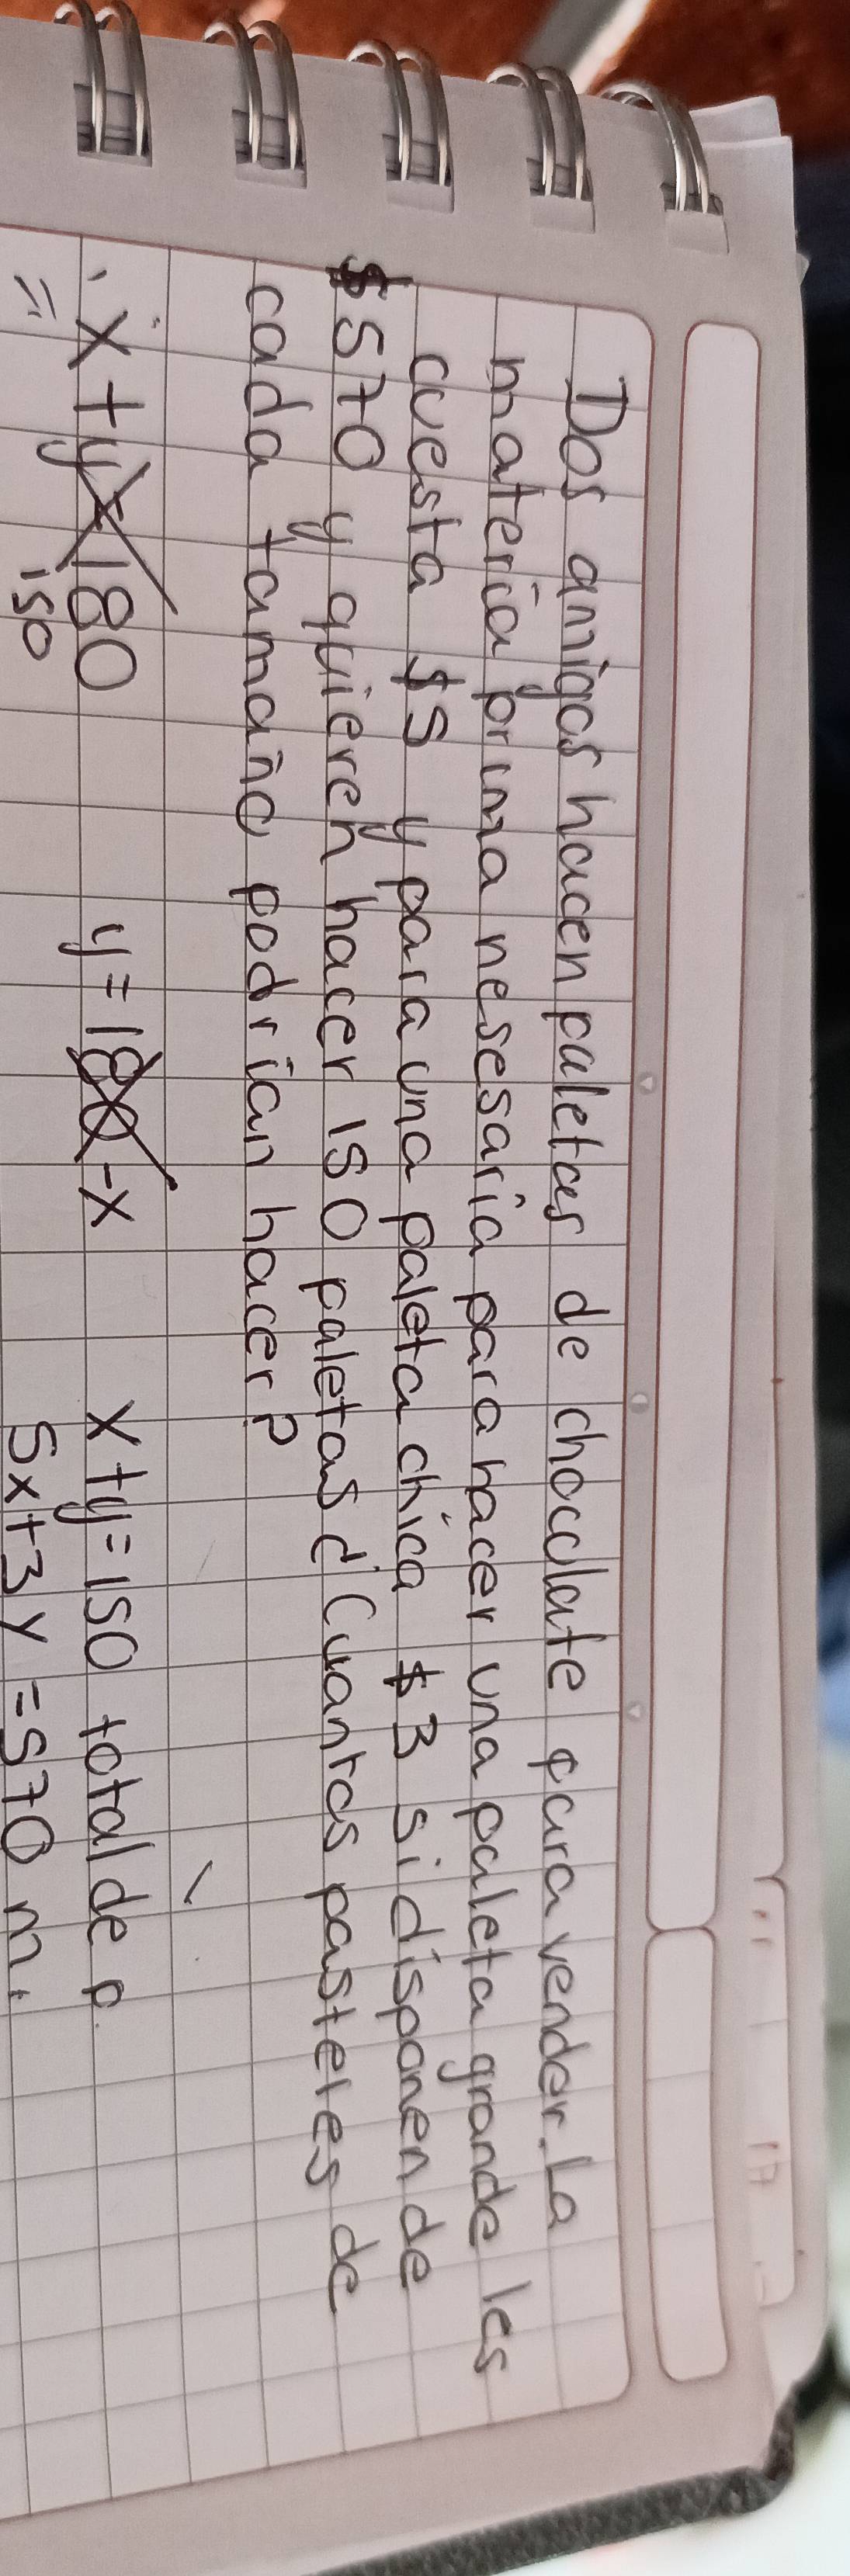 Dos amigos hacen paletas de chocolate para vender. La
materia prima nesesaria para hacer una paleta grande les
cuesta $5 y para una paleta chica $3 si disponen de
$570 y quieren hacer 150 paletas ¿Cuantos pasteles de
cada tamaño podrian hacer?
x+y=180 y=180-x x+y=150 total de p.
150 5x+3y=570 m.